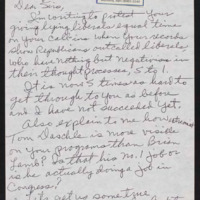 Dear Sirs,
I'm writing to protest your
giving lying liberals equal time
on your call ins when your records
show Republicans outcalled liberals,
who have nothing but negativeness in
their thought processes, 5 to 1.
It is now 5 times as hard to
get through to you as before
and I have not succeeded yet.
Also explain to me how
Tom Daschle is more visible
on your programs than Brian
Lamb? Is that his no. 1 job or
is he actually doing a job in
Congress?
let us